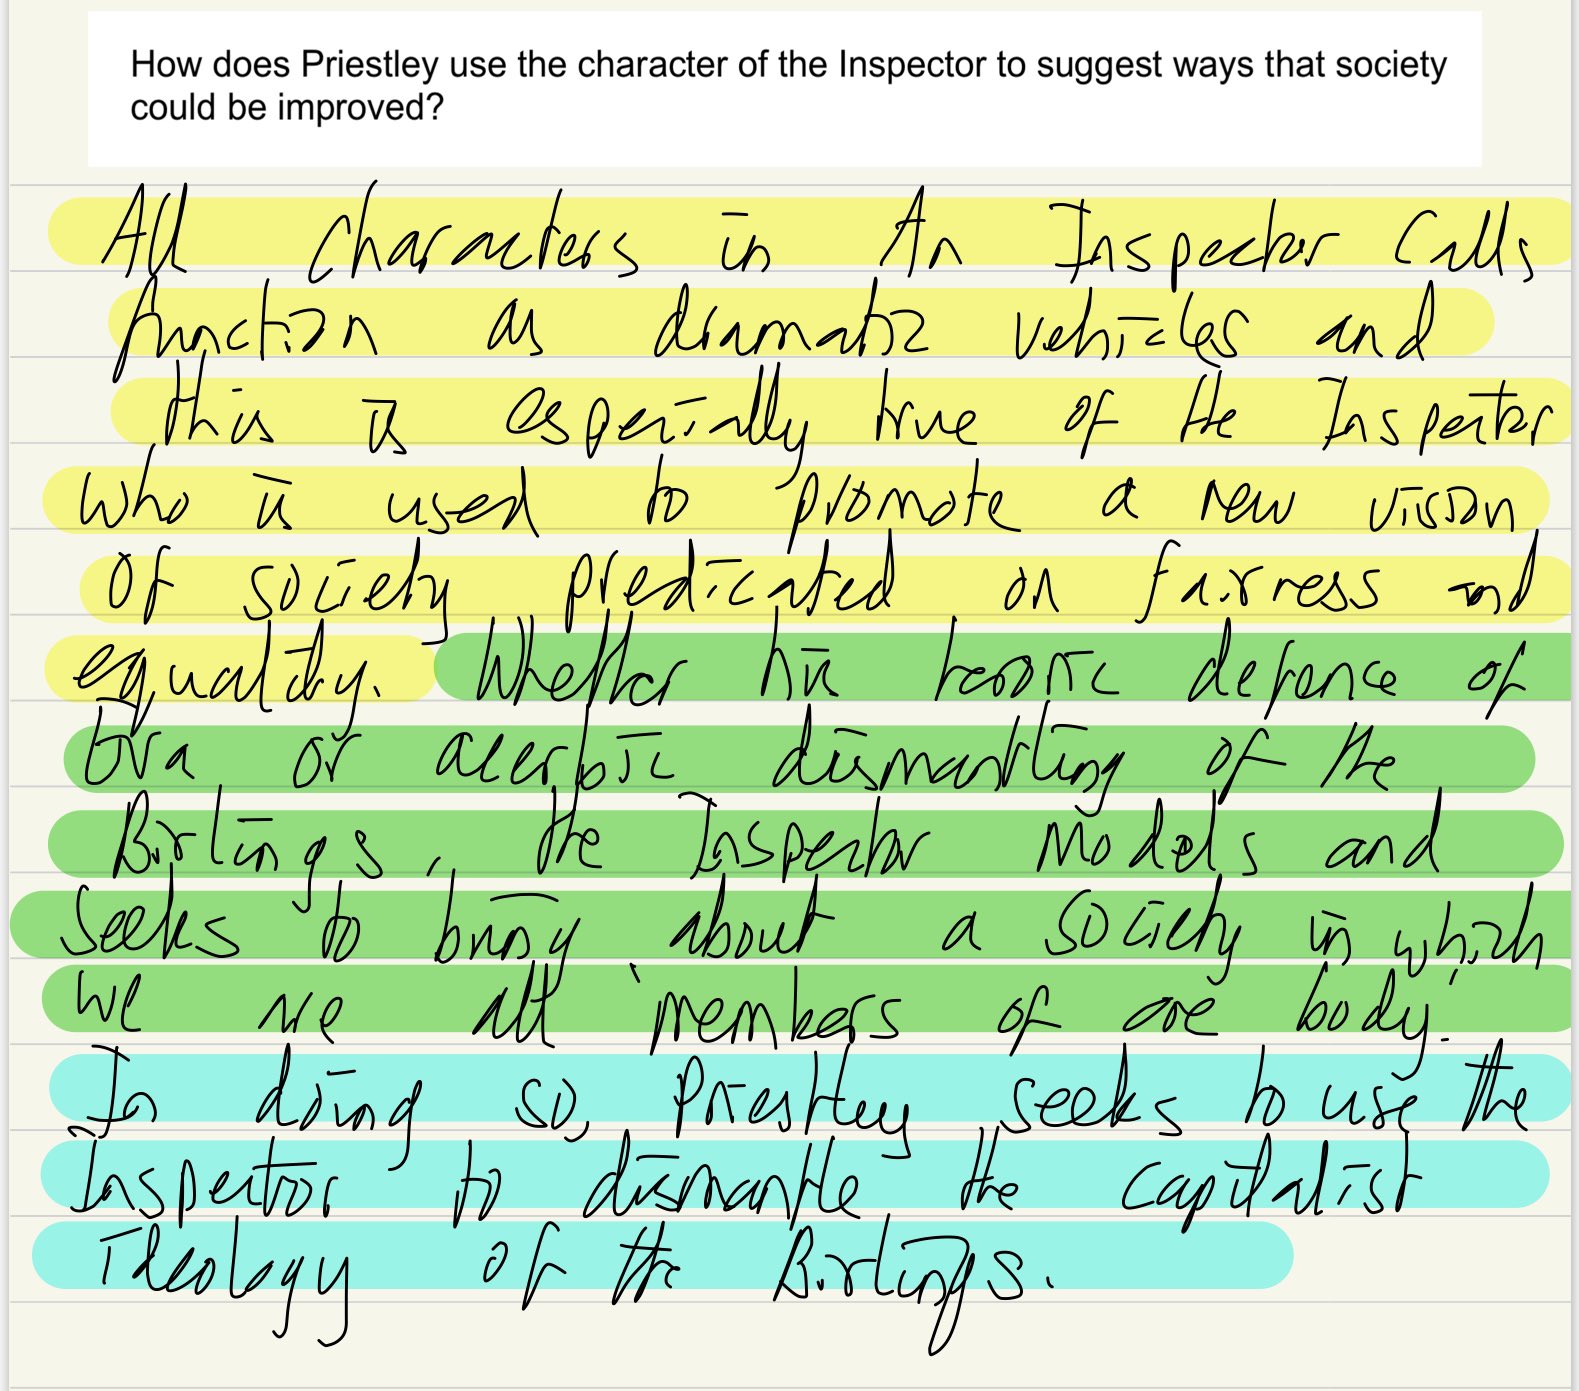 How does Priestley use the character of the Inspector to suggest ways that society
could be improved?
All characters in An Inspector Calls
function as dramatic vehicles and
this is especially true of the Inspector
who is used to promote a new vision
of society predicated on fairness and
equality. Whether his heroic defence of
Eva or acerbic dismantling of the
Birlings, the Inspector models and
seeks to bring about a society in which
we are all 'members of one body'.
In doing so, Priestley seeks to use the
Inspector to dismantle the capitalist
ideology of the Birlings.